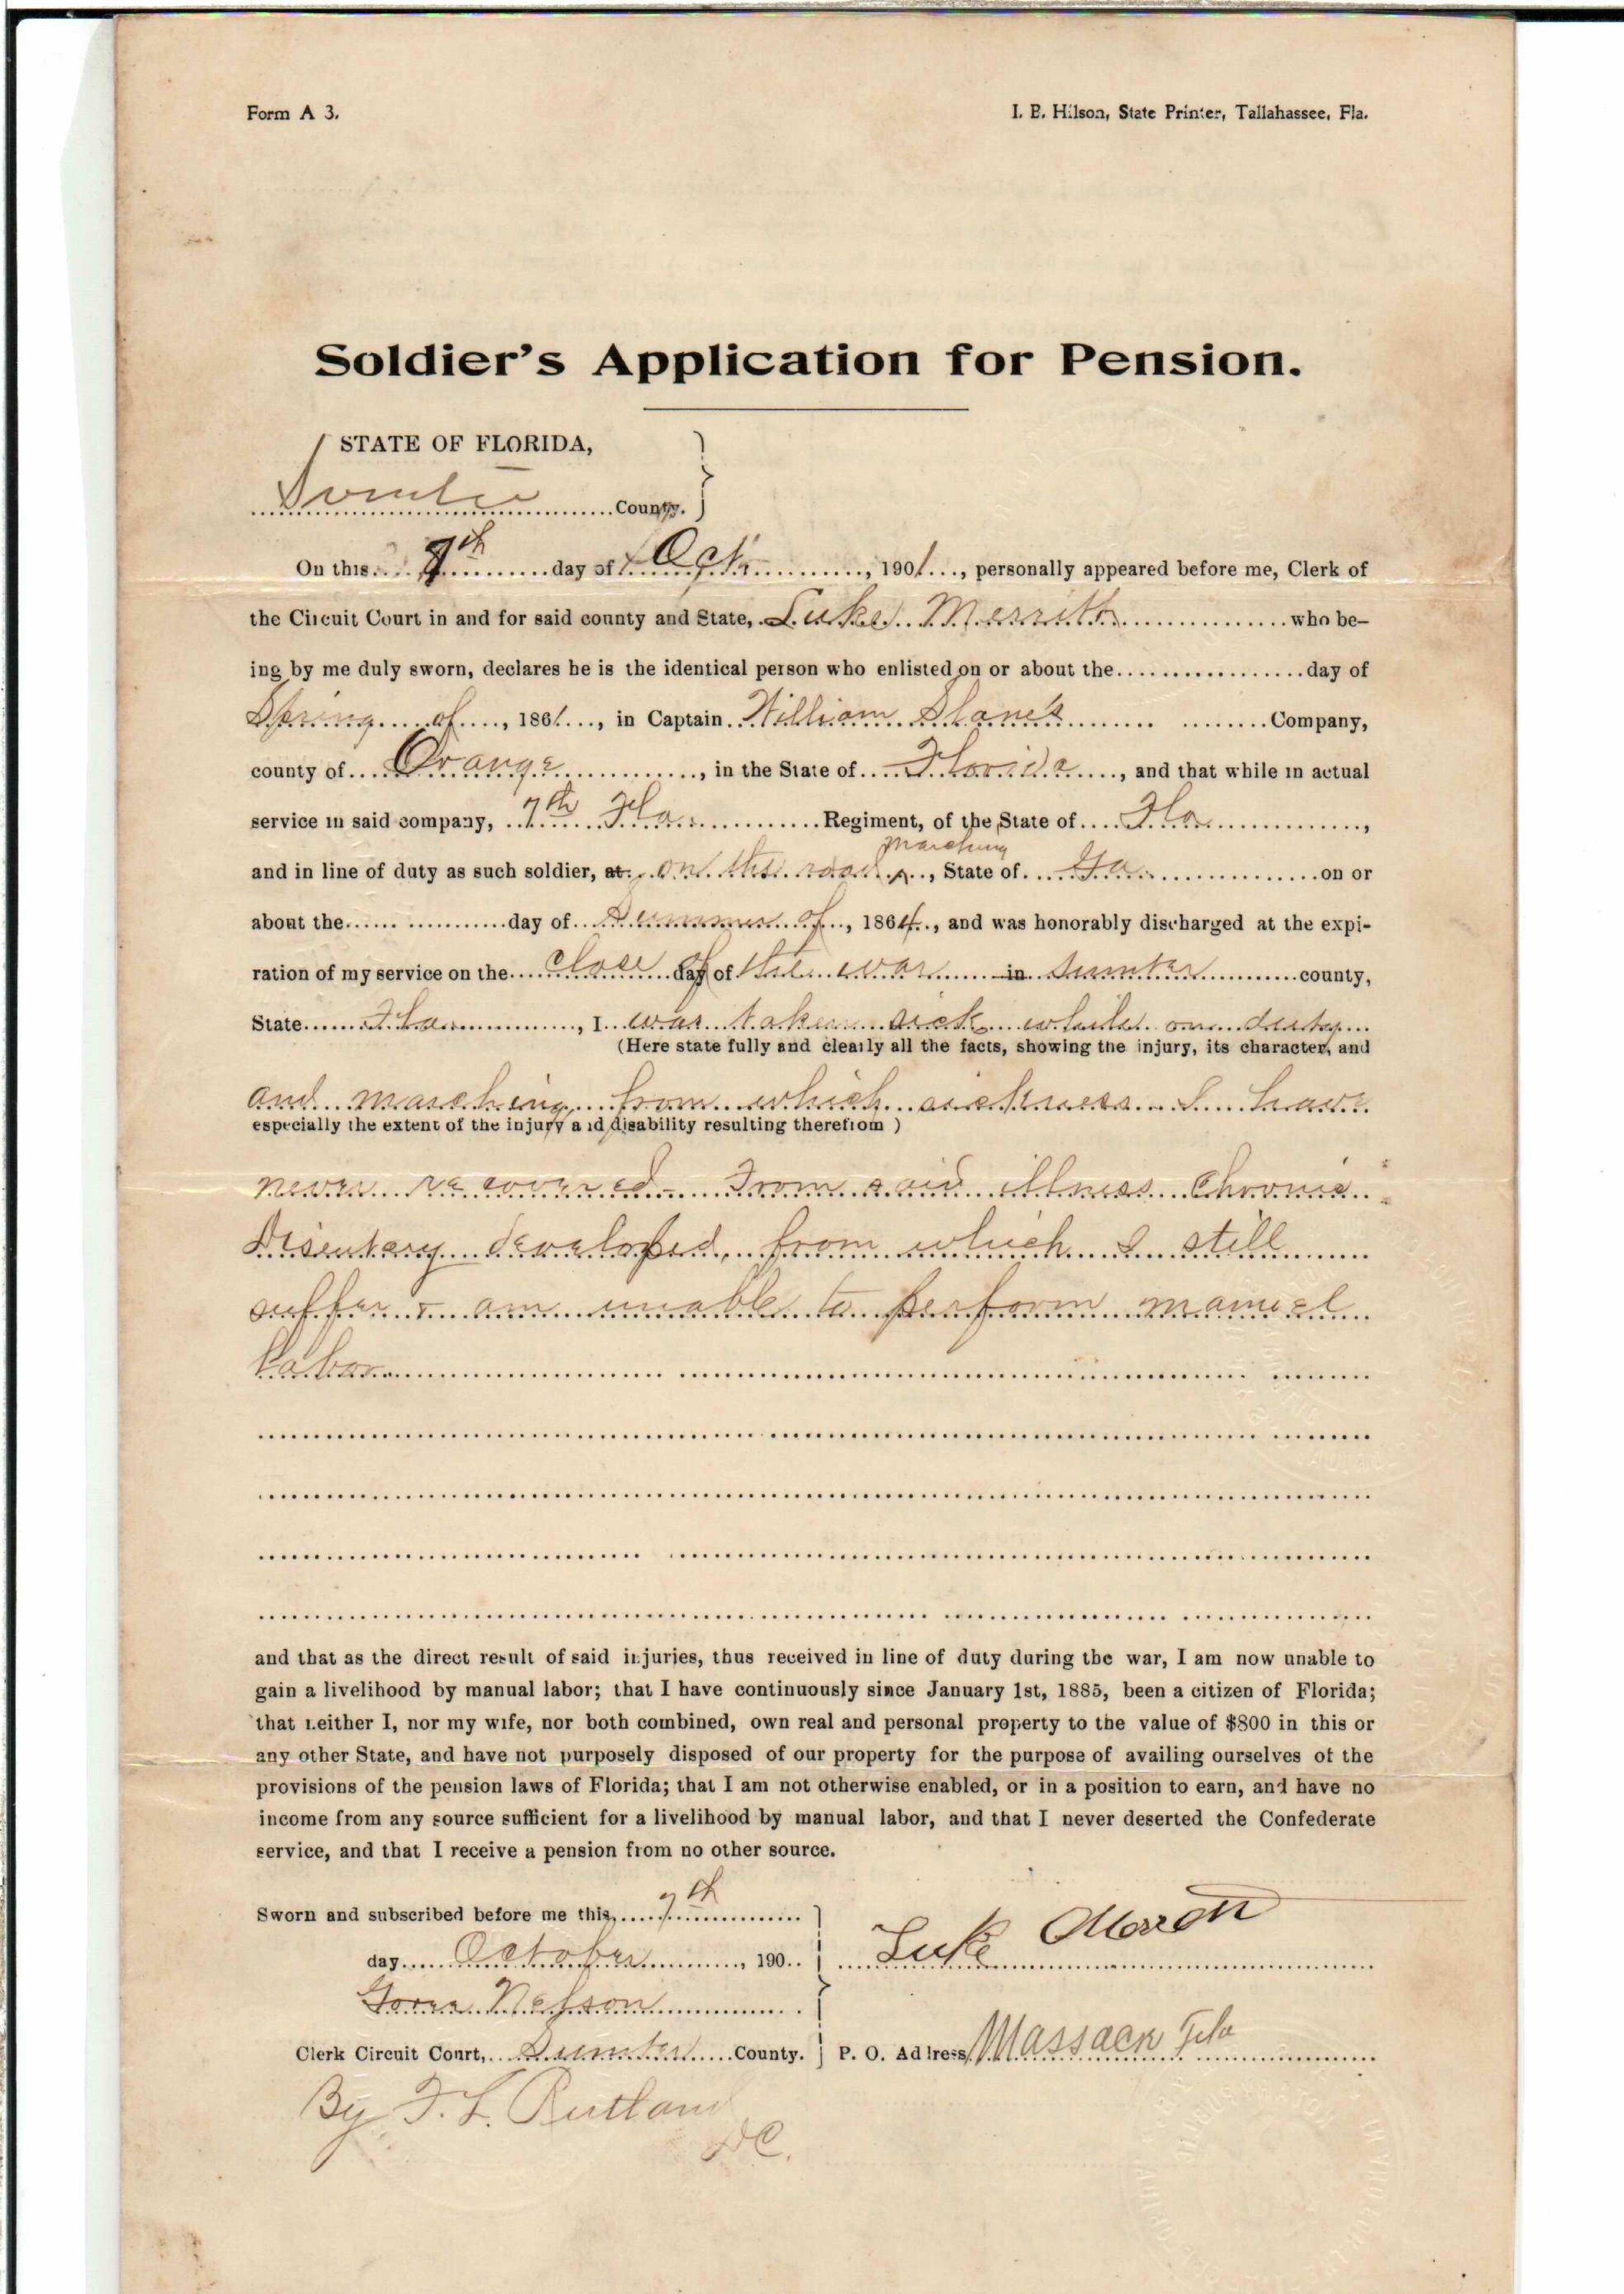 Form A 3.
I. B. Hilson, State Printer, Tallahassee, Fla.
Soldier's Application for Pension.
STATE OF FLORIDA,
Sumter County.
On this 7th day of Oct, 1901, personally appeared before me, Clerk of
the Circuit Court in and for said county and State, Luke Merritt who be-
ing by me duly sworn, declares he is the identical person who enlisted on or about the day of
Spring of, 1861, in Captain William Slane's Company,
county of Orange, in the State of Florida, and that while in actual
service in said company, 7th Fla. Regiment, of the State of Fla,
marching
and in line of duty as such soldier, at on the road, State of Ga on or
about the day of Summer of, 1864, and was honorably discharged at the expi-
ration of my service on the close day of the war in Sumter county,
State Fla, I was taken sick while on duty
(Here state fully and clearly all the facts, showing the injury, its character, and
and marching from which sickness I have
especially the extent of the injury and disability resulting therefrom)
never recovered - From said illness Chronic
Disentary developed, from which I still
suffer & am unable to perform manuel
labor
and that as the direct result of said injuries, thus received in line of duty during the war, I am now unable to
gain a livelihood by manual labor; that I have continuously since January 1st, 1885, been a citizen of Florida;
that neither I, nor my wife, nor both combined, own real and personal property to the value of $800 in this or
any other State, and have not purposely disposed of our property for the purpose of availing ourselves of the
provisions of the pension laws of Florida; that I am not otherwise enabled, or in a position to earn, and have no
income from any source sufficient for a livelihood by manual labor, and that I never deserted the Confederate
service, and that I receive a pension from no other source.
Sworn and subscribed before me this, 7th
day October, 190
Luke Merritt
Clerk Circuit Court, Sumter County.
P. O. Address, Massacr Fla
By T. L. Rutland
DC.